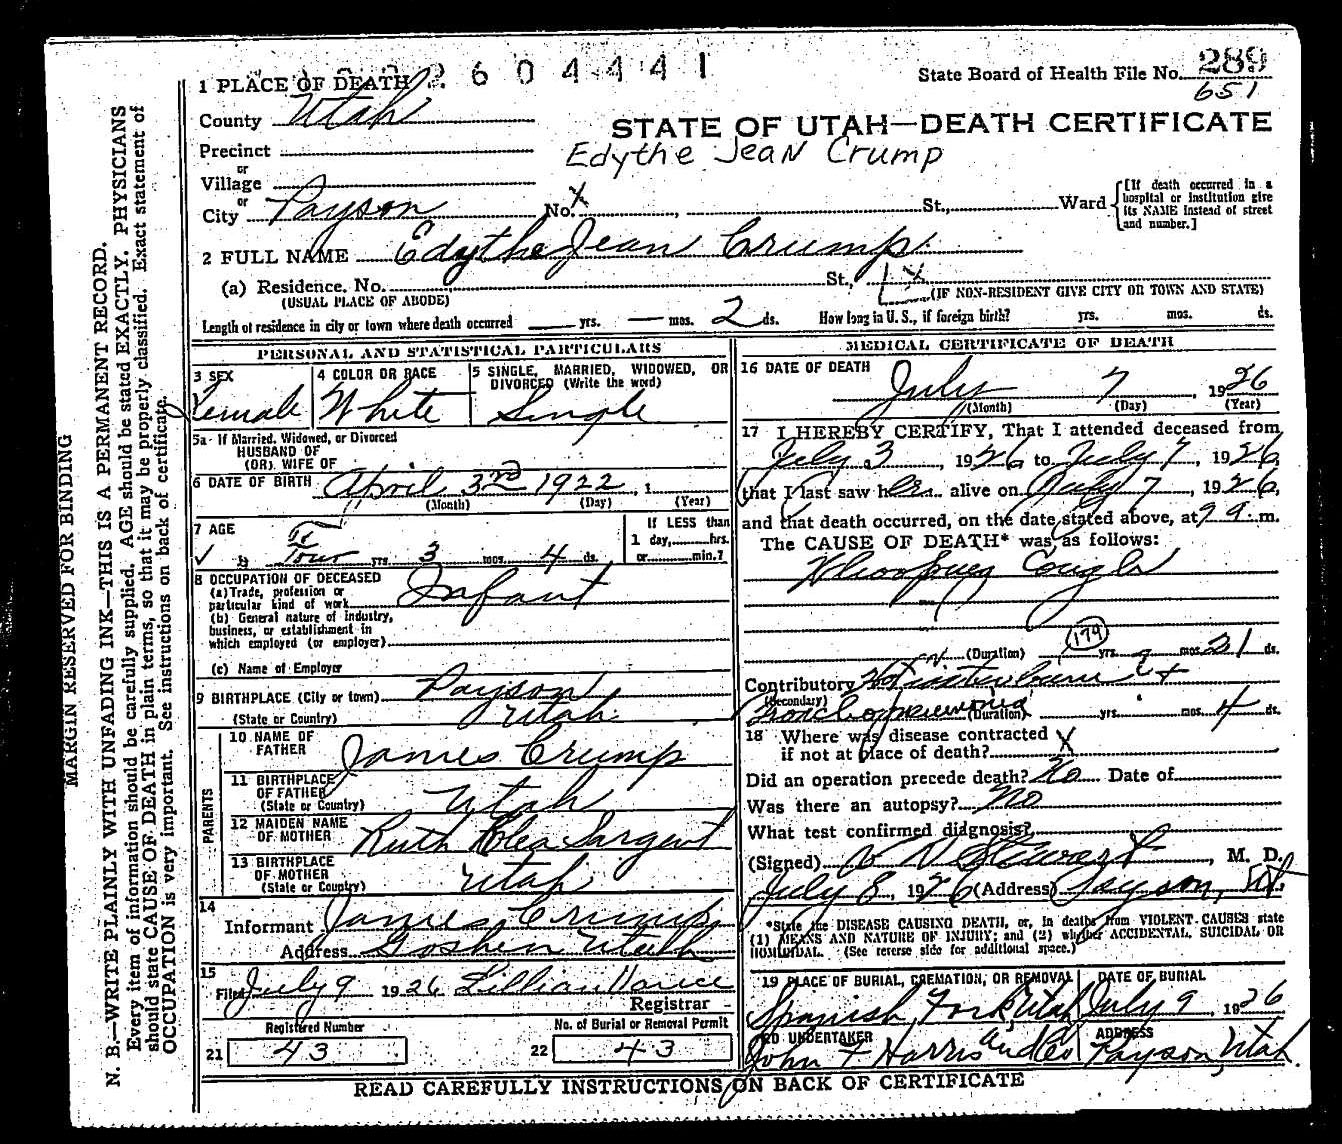 2 6 0 4 4 4 1
State Board of Health File No. 289
651
1 PLACE OF DEATH
County Utah
STATE OF UTAH—DEATH CERTIFICATE
Edythe Jean Crump
Precinct
or
Village
or
City Payson No. X St., Ward
[If death occurred in a hospital or institution give its NAME instead of street and number.]
2 FULL NAME Edythe Jean Crump
(a) Residence. No. St.,
(USUAL PLACE OF ABODE) (IF NON-RESIDENT GIVE CITY OR TOWN AND STATE)
Length of residence in city or town where death occurred — yrs. — mos. 2 ds. How long in U. S., if foreign birth? yrs. mos. ds.
PERSONAL AND STATISTICAL PARTICULARS
3 SEX Female
4 COLOR OR RACE White
5 SINGLE, MARRIED, WIDOWED, OR DIVORCED (Write the word) Single
5a- If Married, Widowed, or Divorced
HUSBAND OF
(OR) WIFE OF
6 DATE OF BIRTH April 3rd 1922, 1
(Month) (Day) (Year)
7 AGE
Four yrs. 3 mos. 4 ds.
If LESS than
1 day, hrs.
or min.?
8 OCCUPATION OF DECEASED Infant
(a) Trade, profession or
particular kind of work
(b) General nature of industry,
business, or establishment in
which employed (or employer)
(c) Name of Employer
9 BIRTHPLACE (City or town) Payson
(State or Country) Utah
PARENTS
10 NAME OF FATHER James Crump
11 BIRTHPLACE OF FATHER (State or Country) Utah
12 MAIDEN NAME OF MOTHER Ruth Sargent
13 BIRTHPLACE OF MOTHER (State or Country) Utah
14
Informant James Crump
Address Goshen Utah
15
Filed July 9 1926 Lillian
Registrar
Registered Number
21 43
No. of Burial or Removal Permit
22 43
MEDICAL CERTIFICATE OF DEATH
16 DATE OF DEATH
July 7, 1926
(Month) (Day) (Year)
17 I HEREBY CERTIFY, That I attended deceased from
July 3, 1926, to July 7, 1926,
that I last saw her alive on July 7, 1926,
and that death occurred, on the date stated above, at 9 a. m.
The CAUSE OF DEATH* was as follows:
Whooping Cough
(179)
(Duration) yrs. mos. 21 ds.
Contributory
(Secondary)
Bronchopneumonia (Duration) yrs. mos. 4 ds.
18 Where was disease contracted
if not at place of death? X
Did an operation precede death? No Date of
Was there an autopsy? No
What test confirmed diagnosis?
(Signed) Stewart, M. D.
July 8, 1926 (Address) Payson, Ut.
*State the DISEASE CAUSING DEATH, or, in deaths from VIOLENT CAUSES state
(1) MEANS AND NATURE OF INJURY; and (2) whether ACCIDENTAL, SUICIDAL OR
HOMICIDAL. (See reverse side for additional space.)
19 PLACE OF BURIAL, CREMATION, OR REMOVAL DATE OF BURIAL
Spanish Fork, Utah July 9, 1926
20 UNDERTAKER ADDRESS
John F Harris and Co Payson, Utah
READ CAREFULLY INSTRUCTIONS ON BACK OF CERTIFICATE
MARGIN RESERVED FOR BINDING
N. B.—WRITE PLAINLY WITH UNFADING INK—THIS IS A PERMANENT RECORD.
Every item of information should be carefully supplied. AGE should be stated EXACTLY. PHYSICIANS
should state CAUSE OF DEATH in plain terms, so that it may be properly classified. Exact statement of
OCCUPATION is very important. See instructions on back of certificate.